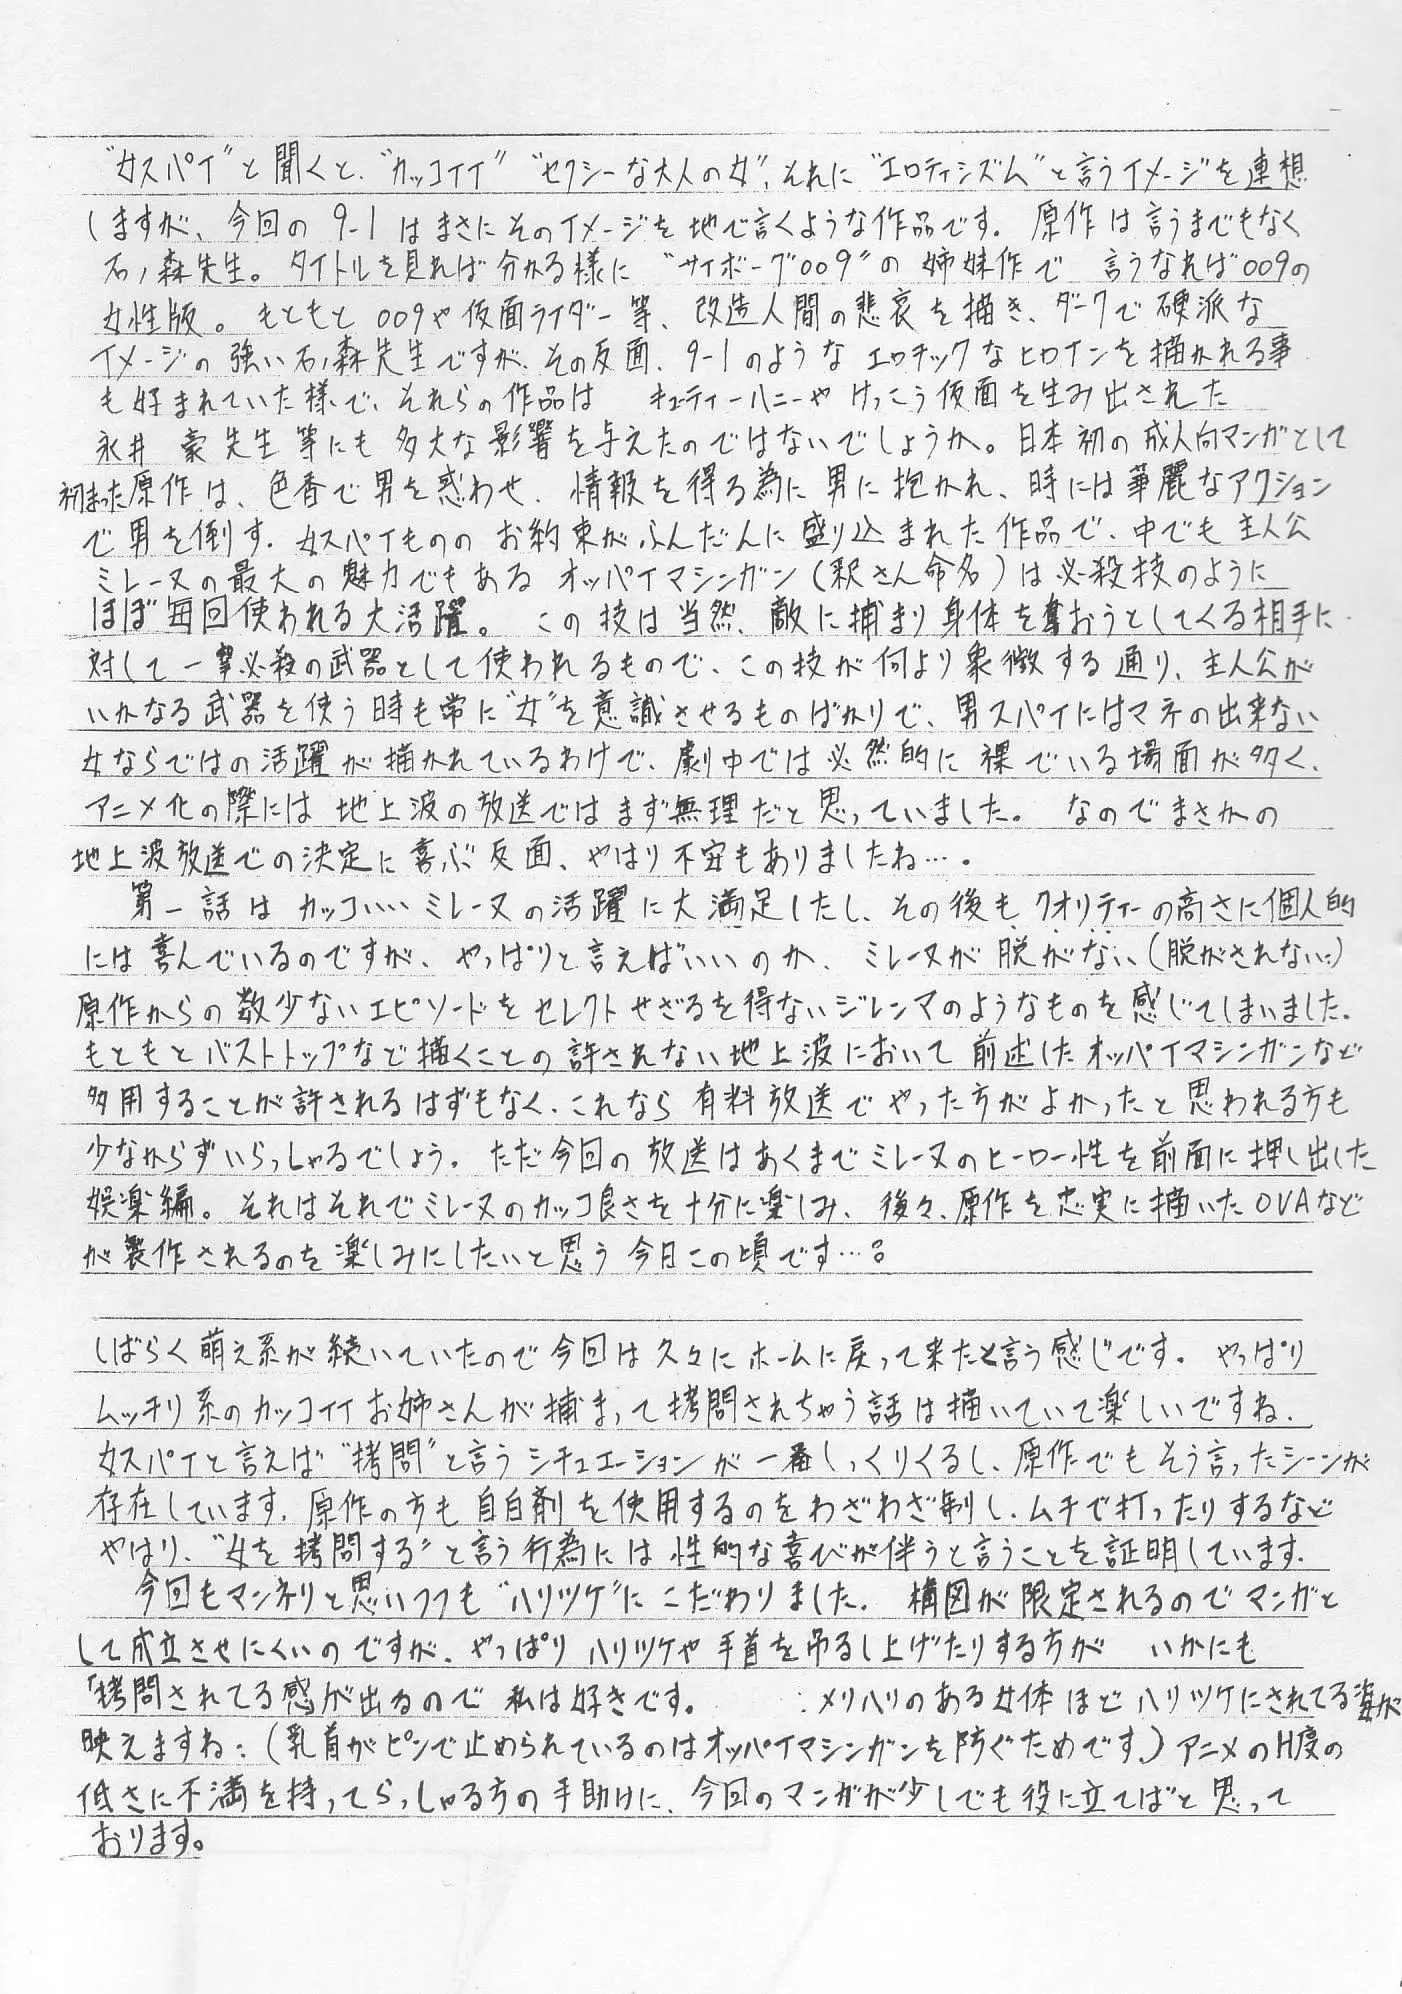 “女スパイ”と聞くと、“カッコイイ”“セクシーな大人の女”、それに“エロティシズム”と言うイメージを連想
しますが、今回の9-1はまさにそのイメージを地で言くような作品です。原作は言うまでもなく
石ノ森先生。タイトルを見れば分かる様に“サイボーグ009”の姉妹作で 言うなれば009の
女性版。もともと009や仮面ライダー等、改造人間の悲哀を描き、ダークで硬派な
イメージの強い石ノ森先生ですが、その反面、9-1のようなエロチックなヒロインを描かれる事
も好まれていた様で、それらの作品は キューティーハニーやけっこう仮面を生み出された
永井 豪先生等にも多大な影響を与えたのではないでしょうか。日本初の成人向マンガとして
初まった原作は、色香で男を惑わせ、情報を得る為に男に抱かれ、時には華麗なアクション
で男を倒す、女スパイもののお約束がふんだんに盛り込まれた作品で、中でも主人公
ミレーヌの最大の魅力でもあるオッパイマシンガン(釈さん命名)は必殺技のように
ほぼ毎回使われる大活躍。この技は当然、敵に捕まり身体を奪おうとしてくる相手に
対して一撃必殺の武器として使われるもので、この技が何より象徴する通り、主人公が
いかなる武器を使う時も常に“女”を意識させるものばかりで、男スパイにはマネの出来ない
女ならではの活躍が描かれているわけで、劇中では必然的に裸でいる場面が多く、
アニメ化の際には地上波の放送ではまず無理だと思っていました。なのでまさかの
地上波放送での決定に喜ぶ反面、やはり不安もありましたね…。
第一話はカッコいいミレーヌの活躍に大満足したし、その後もクオリティーの高さに個人的
には喜んでいるのですが、やっぱりと言えばいいのか、ミレーヌが脱がない(脱がされない)
原作からの数少ないエピソードをセレクトせざるを得ないジレンマのようなものを感じてしまいました。
もともとバストトップなど描くことの許されない地上波において前述したオッパイマシンガンなど
多用することが許されるはずもなく、これなら有料放送でやった方がよかったと思われる方も
少なからずいらっしゃるでしょう。ただ今回の放送はあくまでミレーヌのヒーロー性を前面に押し出した
娯楽編。それはそれでミレーヌのカッコ良さを十分に楽しみ、後々、原作を忠実に描いたOVAなど
が製作されるのを楽しみにしたいと思う今日この頃です…。
しばらく萌え系が続いていたので今回は久々にホームに戻って来たと言う感じです。やっぱり
ムッチリ系のカッコイイお姉さんが捕まって拷問されちゃう話は描いていて楽しいですね。
女スパイと言えば“拷問”と言うシチュエーションが一番しっくりくるし、原作でもそう言ったシーンが
存在しています。原作の方も自白剤を使用するのをわざわざ制し、ムチで打ったりするなど
やはり、“女を拷問する”と言う行為には性的な喜びが伴うと言うことを証明しています。
今回もマンネリと思いつつも“ハリツケ”にこだわりました。構図が限定されるのでマンガと
して成立させにくいのですが、やっぱりハリツケや手首を吊るし上げたりする方が いかにも
「拷問されてる感が出るので私は好きです。 メリハリのある女体ほどハリツケにされてる姿が
映えますね。(乳首がピンで止められているのはオッパイマシンガンを防ぐためです。)アニメのH度の
低さに不満を持ってらっしゃる方の手助けに、今回のマンガが少しでも役に立てばと思って
おります。